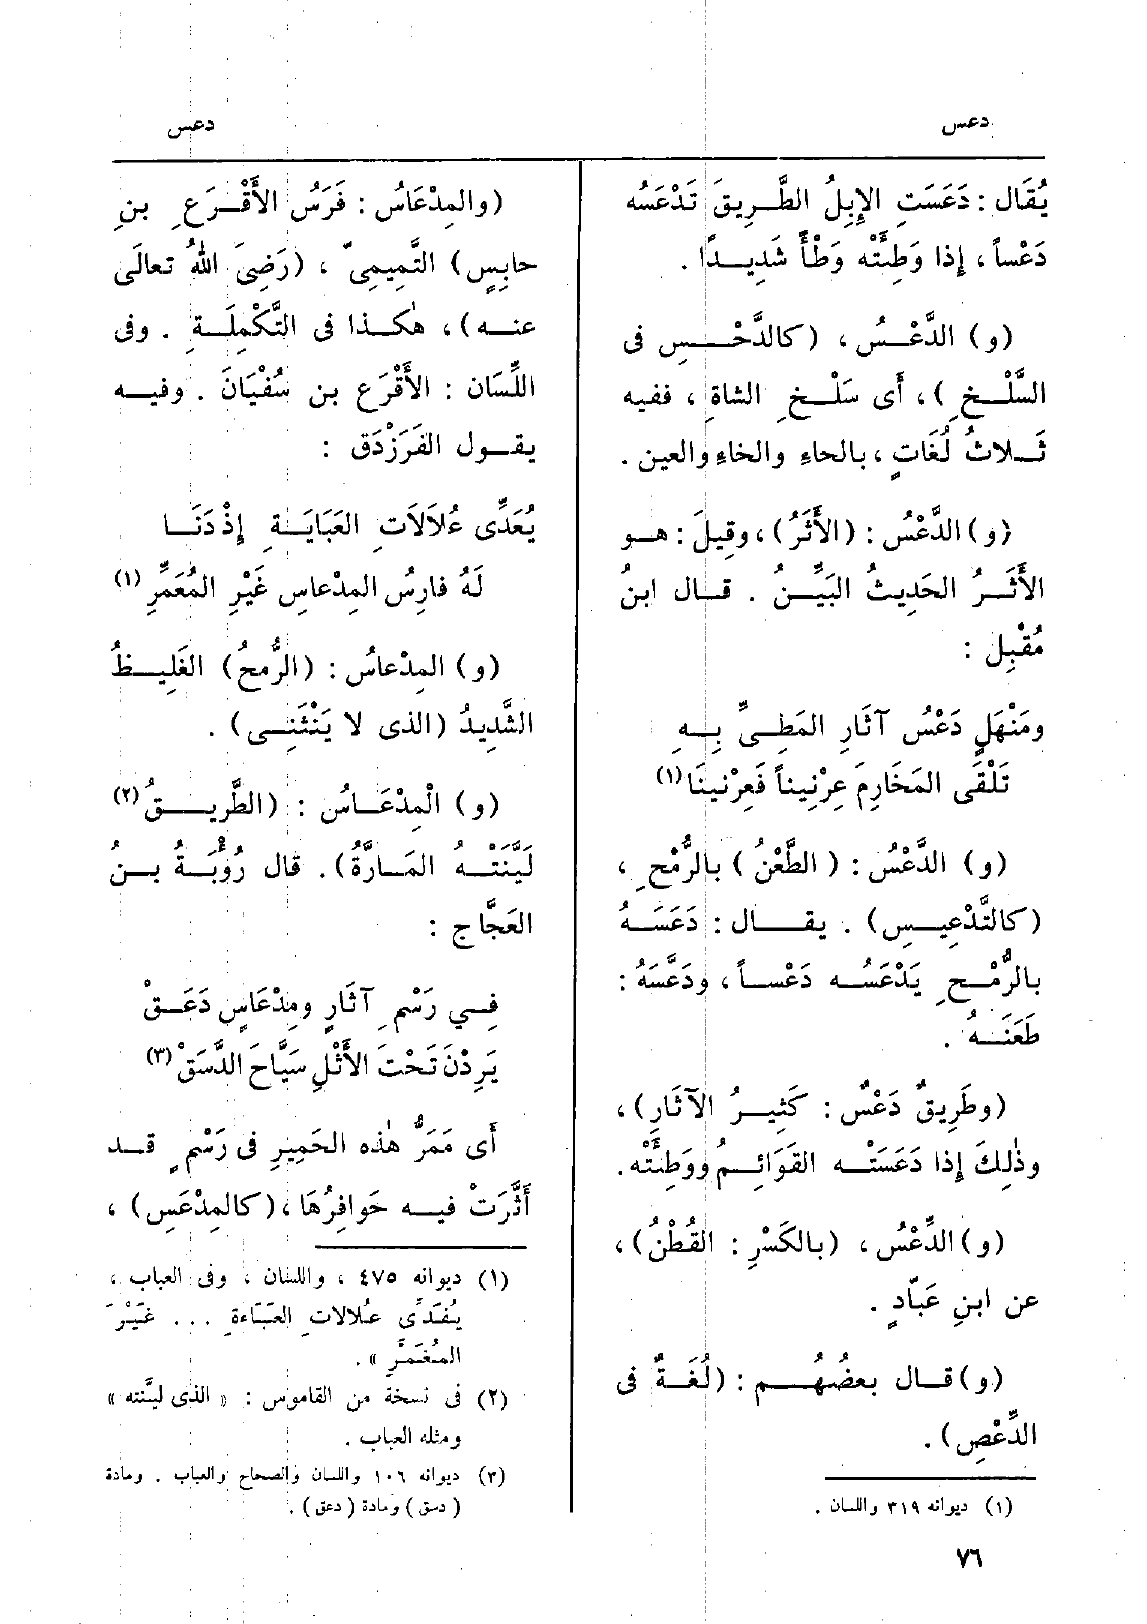 دعس
دعس
يُقَال : دَعَسَتِ الإِبِلُ الطَّرِيقَ تَدْعَسُه
دَعْساً ، إِذا وَطِئَتْه وَطْأً شَدِيدًا .
(و) الدَّعْسُ ، (كالدَّحْسِ فى
السَّلْخِ) ، أَى سَلْخِ الشاةِ ، ففيه
ثَلاثُ لُغَاتٍ ، بالحاءِ والخاءِ والعين .
(و) الدَّعْسُ : (الأَثَرُ) ، وقِيلَ : هو
الأَثَرُ الحَدِيثُ البَيِّنُ . قال ابنُ
مُقْبِل :
ومَنْهَلٍ دَعْسُ آثَارِ المَطِىِّ بِهِ
تَلْقَى المَخَارِمَ عِرْنِيناً فَعِرْنِينَا (١)
(و) الدَّعْسُ : (الطَّعْنُ) بالرُّمْحِ ،
(كالتَّدْعِيسِ) . يقال : دَعَسَهُ
بالرُّمْحِ يَدْعَسُه دَعْساً ، ودَعَّسَهُ :
طَعَنَهُ .
(وطَرِيقٌ دَعْسٌ : كَثِيرُ الآثَارِ) ،
وذٰلِكَ إِذا دَعَسَتْه القَوَائِمُ ووَطِئَتْه .
(و) الدِّعْسُ ، (بالكَسْرِ : القُطْنُ) ،
عن ابنِ عَبّادٍ .
(و) قال بعضُهُم : (لُغَةٌ فى
الدِّعْصِ) .
(١) ديوانه ٣١٩ واللسان .
(والمِدْعَاسُ : فَرَسُ الأَقْرَعِ بنِ
حابِسٍ) التَّمِيمِىّ ، (رَضِىَ اللهُ تعالَى
عنه) ، هٰكذا فى التَّكْمِلَةِ . وفى
اللِّسَان : الأَقْرَع بن سُفْيَانَ . وفيه
يقول الفَرَزْدَق :
يُعَدِّى عُلَالَاتِ العَبَايَةِ إِذْ دَنَا
لَهُ فارِسُ المِدْعاسِ غَيْرِ المُعَمِّرِ (١)
(و) المِدْعاسُ : (الرُّمحُ) الغَلِيظُ
الشَّدِيدُ (الذى لا يَنْثَنِى) .
(و) الْمِدْعَاسُ : (الطَّرِيقُ (٢)
لَيَّنَتْهُ المَارَّةُ) . قال رُؤْبَةُ بنُ
العَجَّاج :
فِي رَسْمِ آثَارٍ ومِدْعَاسٍ دَعَقْ
يَرِدْنَ تَحْتَ الأَثْلِ سَيَّاحَ الدَّسَقْ (٣)
أَى مَمَرُّ هٰذه الحَمِيرِ فى رَسْمٍ قد
أَثَّرَتْ فيه حَوافِرُهَا ، (كالمِدْعَسِ) ،
(١) ديوانه ٤٧٥ ، واللسان ، وفى العباب ،
يُفَدِّى عُلالاتِ العَبَاءةِ ... غَيْرَ
المُغَمَّرِ » .
(٢) فى نسخة من القاموس : « الذى ليَّنته »
ومثله العباب .
(٣) ديوانه ١٠٦ واللسان والصحاح والعباب . ومادة
(دسق) ومادة (دعق) .
٧٦